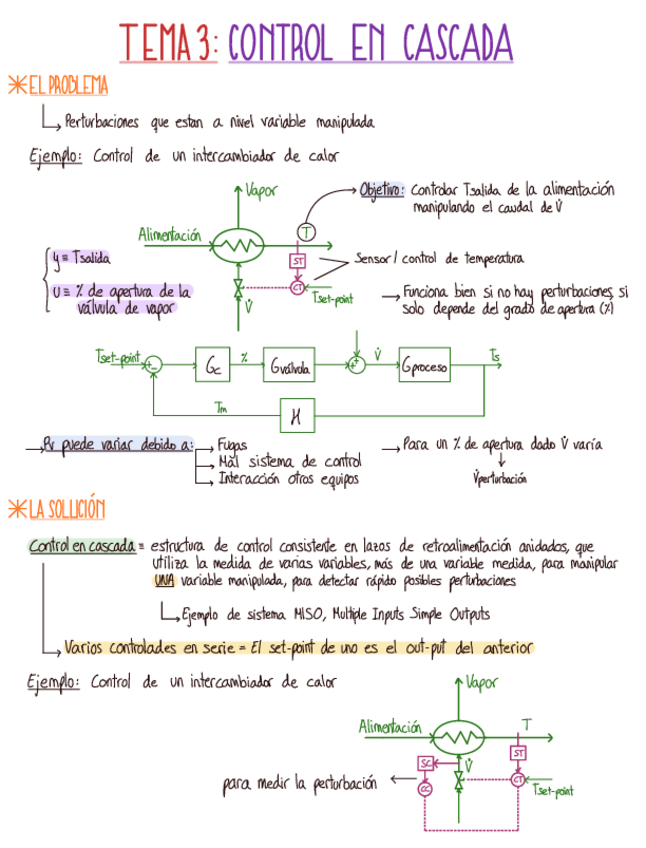 TEMA 3: CONTROL EN CASCADA
*EL PROBLEMA
Perturbaciones que estan a nivel variable manipulada
Ejemplo: Control de un intercambiador de calor
Vapor
Objetivo: Controlar Tsalida de la alimentación
manipulando el caudal de V̇
Alimentación
T
y ≡ Tsalida
ST
Sensor / control de temperatura
U ≡ % de apertura de la
válvula de vapor
CT
Tset-point
V̇
Funciona bien si no hay perturbaciones, si
solo depende del grado de apertura (%)
Tset-point
+
-
Gc
%
Gválvula
+
+
V̇
Gproceso
Ts
Tm
H
Pv puede variar debido a:
Fugas
Mal sistema de control
Interacción otros equipos
Para un % de apertura dado V̇ varía
V̇perturbación
*LA SOLUCIÓN
Control en cascada = estructura de control consistente en lazos de retroalimentación anidados, que
utiliza la medida de varias variables, más de una variable medida, para manipular
UNA variable manipulada, para detectar rápido posibles perturbaciones
Ejemplo de sistema MISO, Multiple Inputs Simple Outputs
Varios controlades en serie = El set-point de uno es el out-put del anterior
Ejemplo: Control de un intercambiador de calor
Vapor
Alimentación
T
ST
SC
V̇
CT
Tset-point
CC
para medir la perturbación